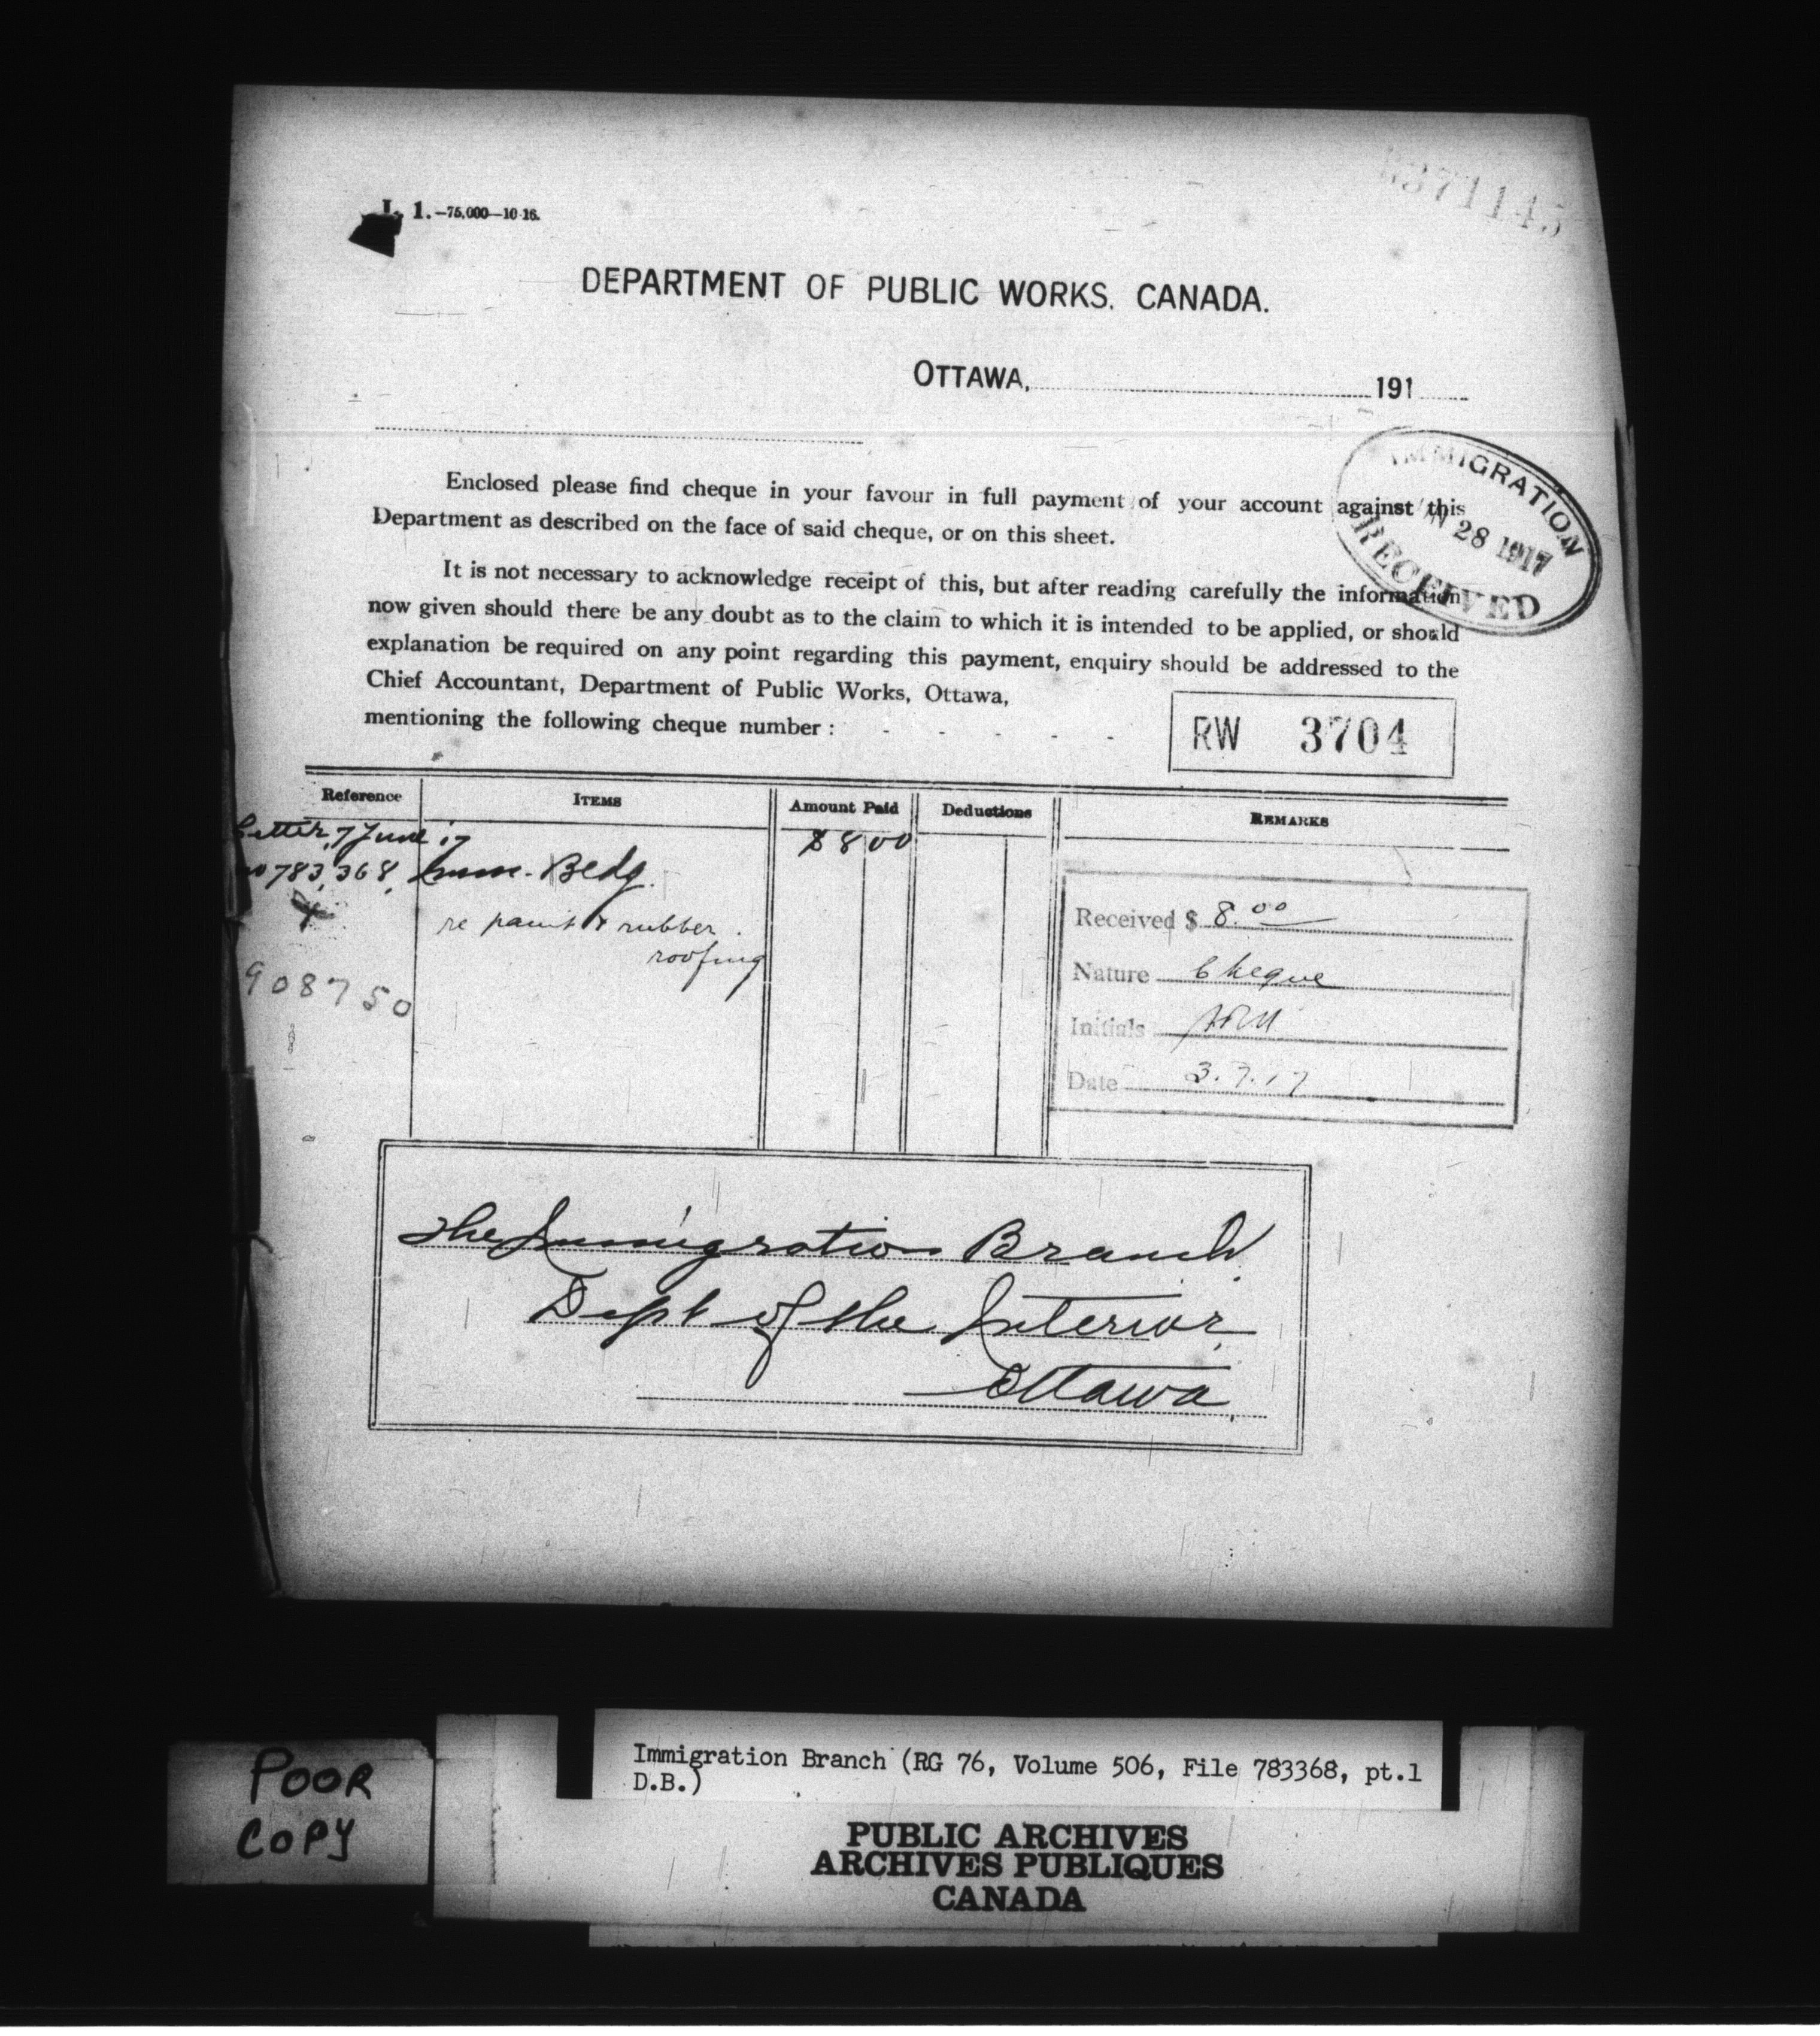 L. 1.—75,000—10-16.
DEPARTMENT OF PUBLIC WORKS, CANADA.
OTTAWA, 191
Enclosed please find cheque in your favour in full payment of your account against this
Department as described on the face of said cheque, or on this sheet.
IMMIGRATION
28 1917
RECEIVED
It is not necessary to acknowledge receipt of this, but after reading carefully the information
now given should there be any doubt as to the claim to which it is intended to be applied, or should
explanation be required on any point regarding this payment, enquiry should be addressed to the
Chief Accountant, Department of Public Works, Ottawa,
mentioning the following cheque number : - - - - -
RW 3704
Reference ITEMS Amount Paid Deductions REMARKS
Letter, 7 June 17 $8 00
no 783,368, Imm. Bldg.
re paint & rubber
roofing
908750
Received $ 8.00
Nature Cheque
Initials
Date 3.7.17
The Immigration Branch
Dept of the Interior,
Ottawa,
POOR
COPY
Immigration Branch (RG 76, Volume 506, File 783368, pt.1
D.B.)
PUBLIC ARCHIVES
ARCHIVES PUBLIQUES
CANADA